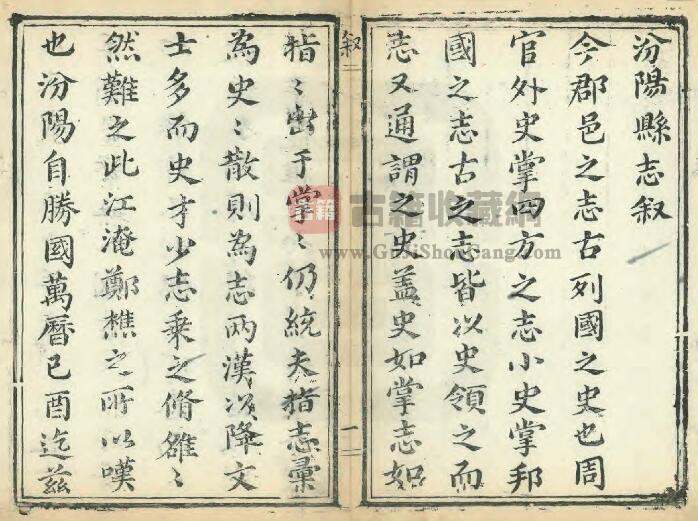 汾陽縣志叙
今郡邑之志古列國之史也周
官外史掌四方之志小史掌邦
國之志古之志皆以史領之而
志又通謂之史盖史如掌志如
叙
一
指〻出于掌〻仍統夫指志彙
為史〻散則為志兩漢以降文
士多而史才少志乗之脩雖〻
然難之此江淹鄭樵之所以嘆
也汾陽自勝國萬曆己酉迄兹
古籍
古籍收藏網
www.GuJiShouCang.com